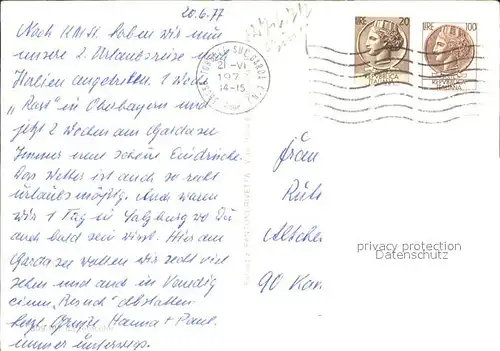 20.6.77
Nach haben wir nun
unsere 2. Urlaubsreise nach
Italien angetreten. 1 Woche
"Rast" in Oberbayern und
jetzt 2 Wochen am Gardasee
Immer neue schöne Eindrücke.
Das Wetter ist auch so recht
urlaubsmäßig. Auch waren
wir 1 Tag in Salzburg wo Du
auch bald sein wirst. Hier am
Gardasee wollen wir recht viel
sehen und auch in Venedig
einen "Besuch" abstatten.
herzl. Grüße Hanna + Paul.
immer unterwegs.
SUL GARDA
21-VI
197
14-15
LIRE 20
REPUBBLICA
ITALIANA
LIRE 100
REPUBBLICA
ITALIANA
Frau
Ruth
90 Kar
privacy protection
Datenschutz